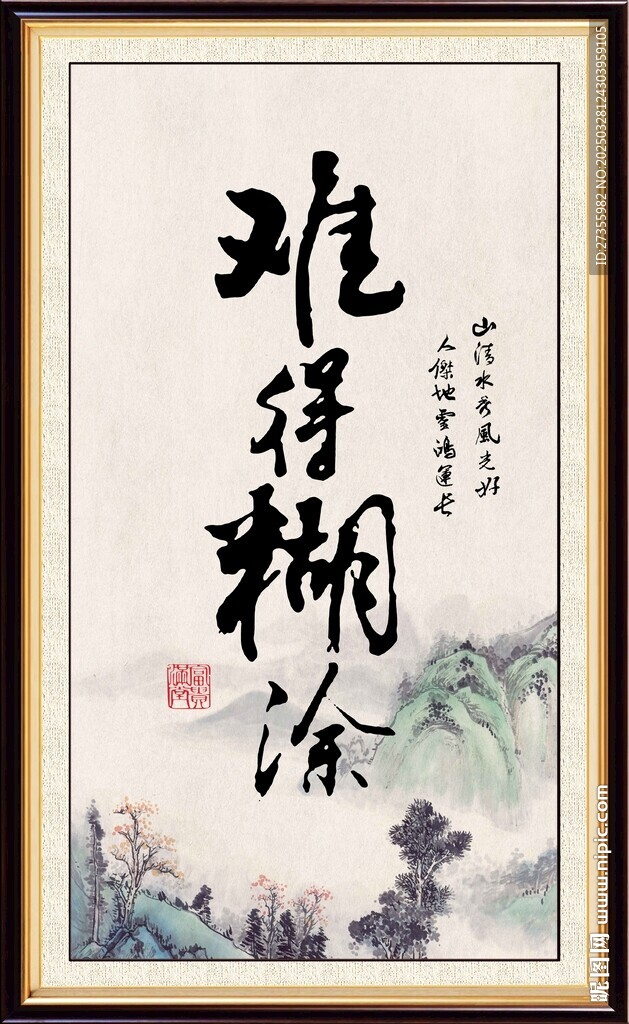 难得糊涂
山清水秀風光好
人傑地靈鴻運长
富貴滿堂
ID:27355982 NO:20250328124303959105
昵图网 www.nipic.com